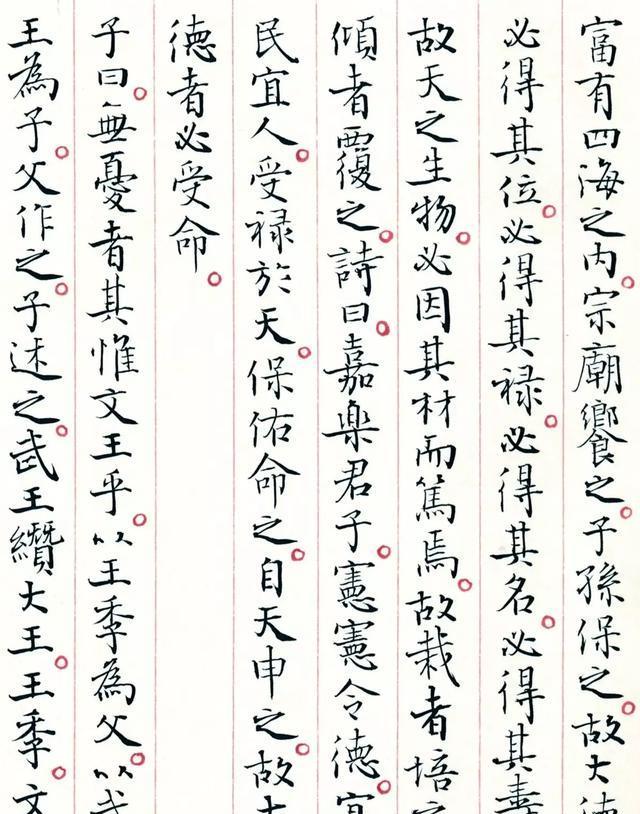 富有四海之内。宗廟饗之。子孫保之。故大德
必得其位。必得其禄。必得其名。必得其壽
故天之生物。必因其材而篤焉。故栽者培之
傾者覆之。詩曰。嘉樂君子。憲憲令德。宜
民宜人。受禄於天。保佑命之。自天申之。故大
德者必受命。
子曰。無憂者其惟文王乎。以王季為父。以武
王為子。父作之。子述之。武王纘大王。王季。文